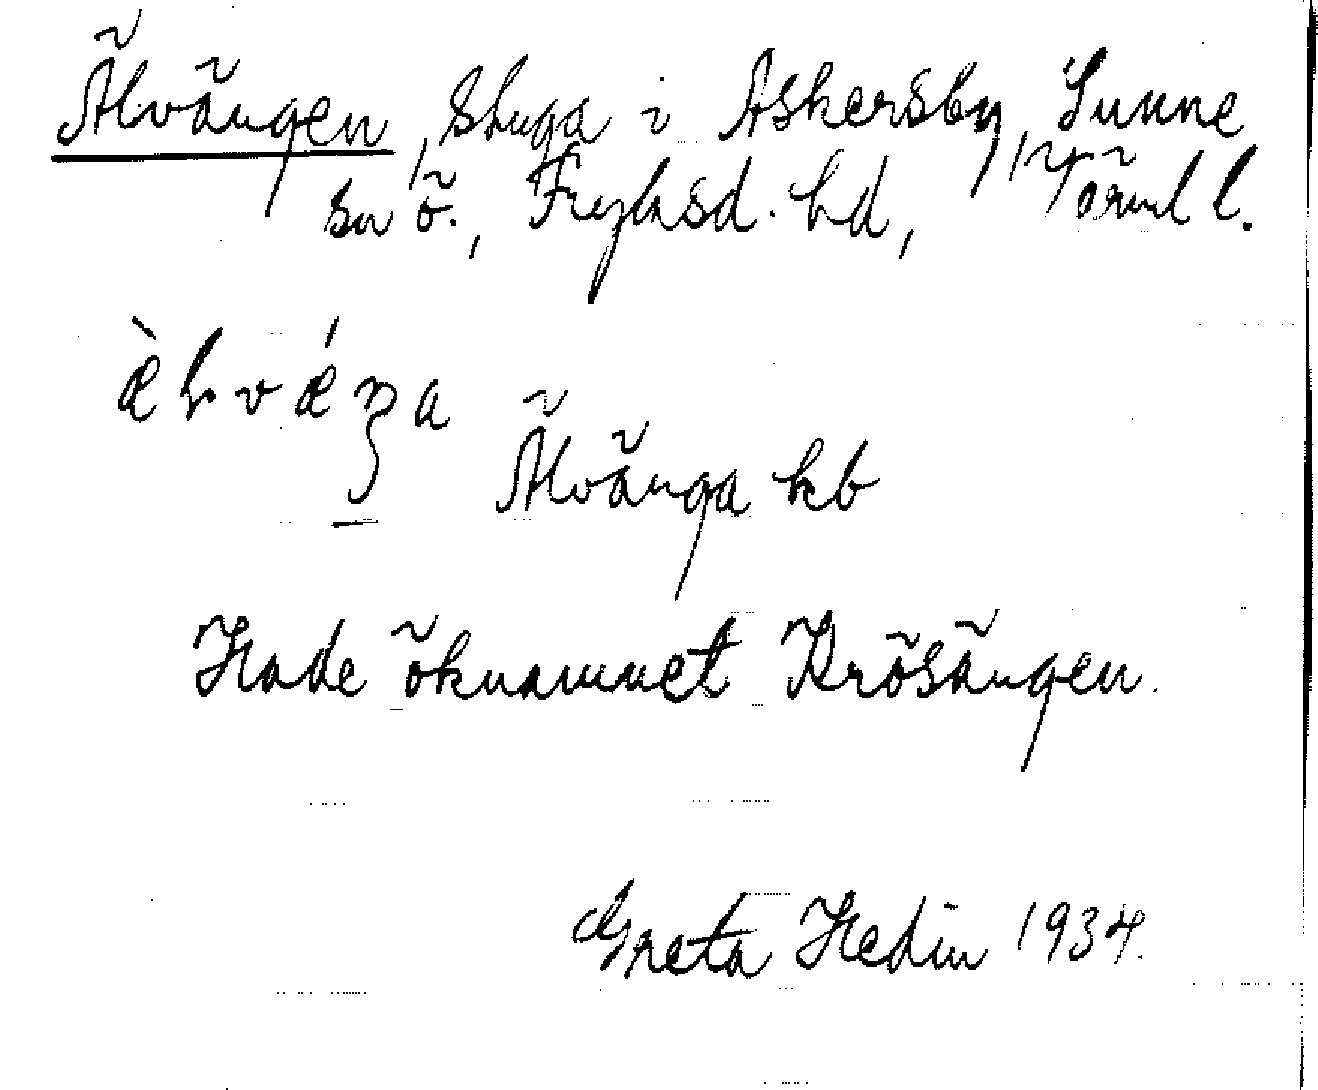 Älvängen, stuga i Askersby, Sunne
sn ö., Fryksd. hd, Värml l.
Älvänga kb
Hade öknamnet Krösängen.
Greta Hedin 1934.